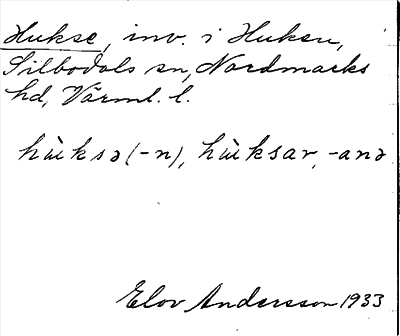 Hukse, inv. i Huken,
Silbodals sn, Nordmarks
hd, Värml. l.
hùksə (-n), hùksar, -anə
Elov Andersson 1933